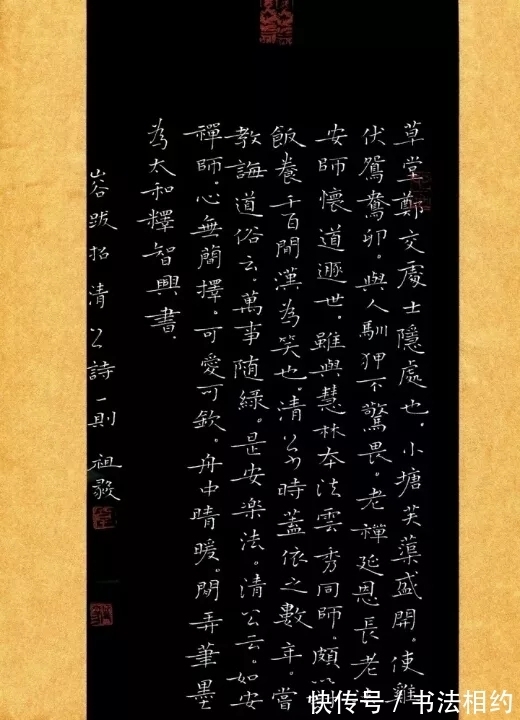 草堂鄭交處士隱處也，小塘芙蕖盛開。使雞
伏鴛鴦卵。與人馴狎不驚畏。老禪延恩長老
安師懷道遯世。雖與慧林本法雲秀同師。頗
飯養千百閒漢為笑也。清公少時蓋依之數年。嘗
教誨道俗云，萬事随緣。是安樂法。清公云。如安
禪師。心無簡擇。可愛可欽。舟中晴暖。閒弄筆墨
為太和釋智興書.
山谷跋招清公詩一則 祖
快传号 / 书法相约